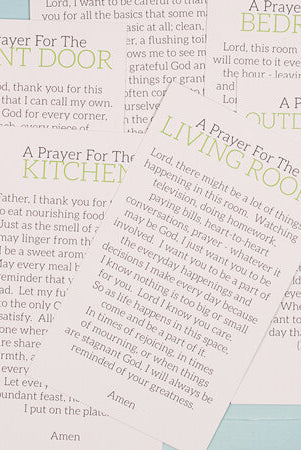 Lord, I want to be careful to than
you for all the basics that some ma
basic at all; clean,
r, a flushing toil
ows me to see m
grateful God an
things for grant
often com
ourselve
A Prayer For
BEDR
Lord, this room
will come to it eve
the hour - leavi
rayer For The
NT DOOR
d, thank you for this
that I can call my own.
God for every corner,
A Pr
OUTD
A Prayer For The
KITCHEN
Father, I thank you for t
to eat nourishing food
Just as the smell of a
may linger from th
be a sweet arom
May every meal b
reminder that
ad. Let my fu
to the only C
satisfy. All
one wher
are share
armth, a
Let ever
undant feast,
I put on the plat
Amen
A Prayer For The
LIVING ROO
Lord, there might be a lot of things
happening in this room. Watching
television, doing homework,
paying bills, heart-to-heart
conversations, prayer - whatever it
may be God, I just want you to be
involved. I want you to be a part of
the everyday happenings and
decisions I make every day because
I know nothing is too big or small
for you. Lord I know you care.
So as life happens in this space,
come and be a part of it.
In times of rejoicing, in times
of mourning, or when things
are stagnant God, I will always be
reminded of your greatness.
Amen